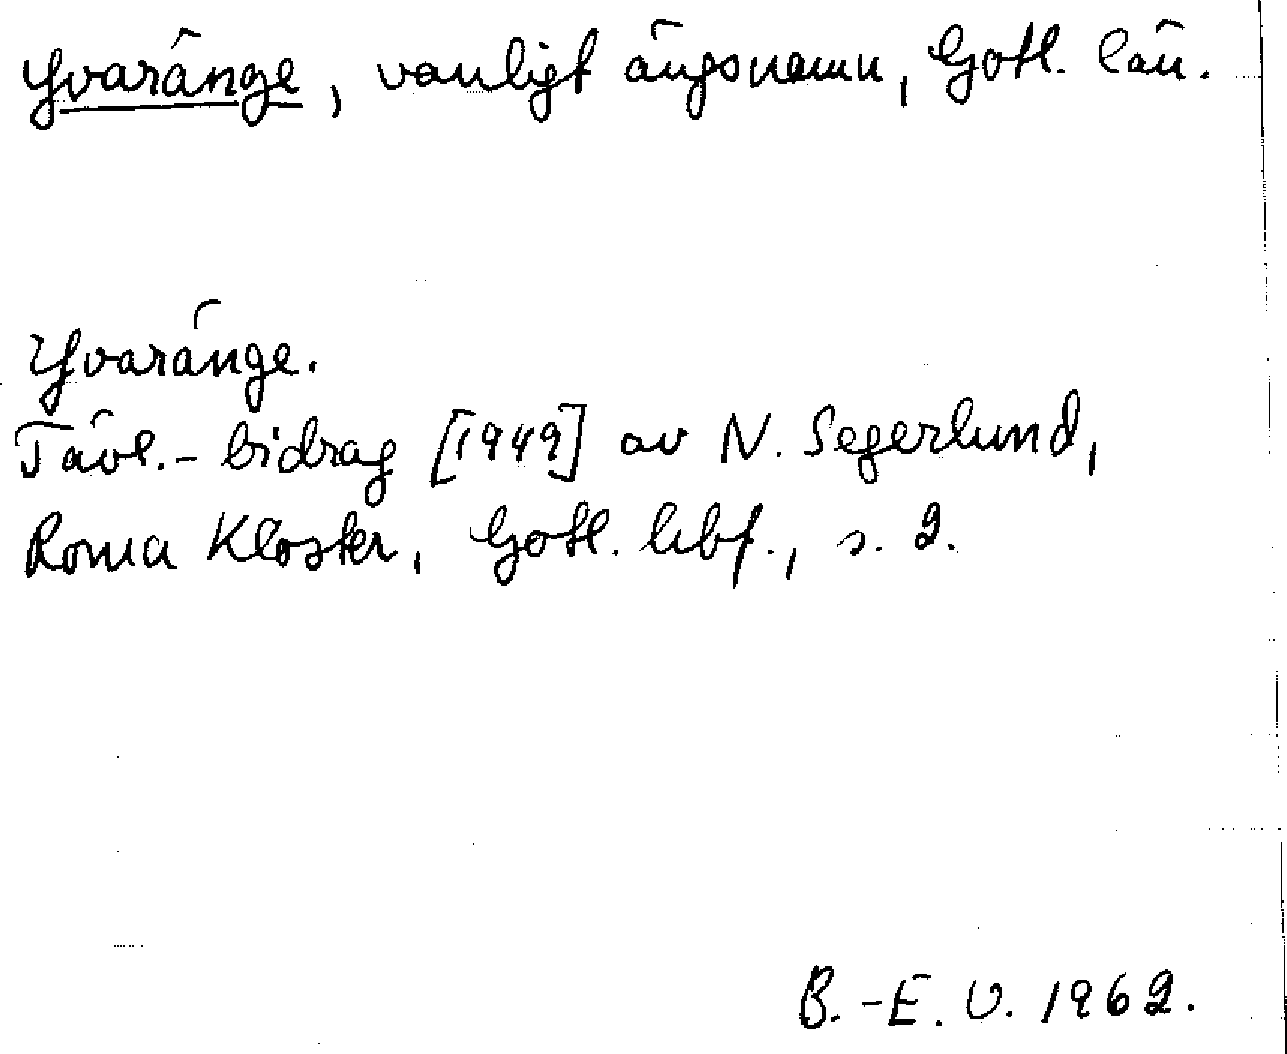 Yvaränge, vanligt ängsnamn, Gotl. län.
Yvaränge.
Tävl.-bidrag [1949] av N. Segerlund,
Roma Kloster, Gotl. lbf., s. 2.
B.-E. U. 1962.